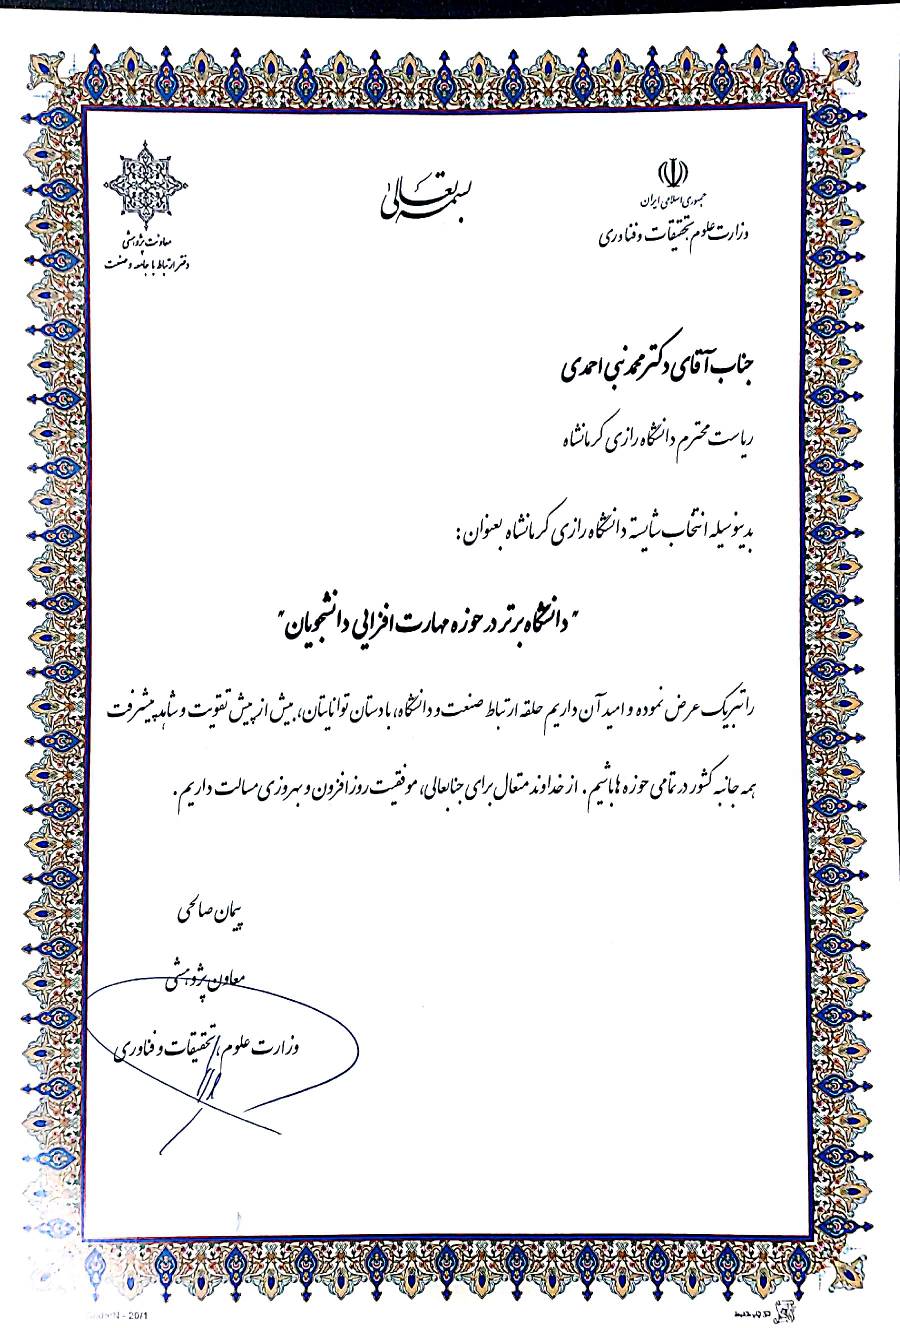 بسمه تعالی
جمهوری اسلامی ایران
وزارت علوم، تحقیقات و فناوری
معاونت پژوهشی
دفتر ارتباط با جامعه و صنعت
جناب آقای دکتر محمد نبی احمدی
ریاست محترم دانشگاه رازی کرمانشاه
بدینوسیله انتخاب شایسته دانشگاه رازی کرمانشاه بعنوان :
"دانشگاه برتر در حوزه مهارت افزایی دانشجویان"
را تبریک عرض نموده و امید آن داریم حلقه ارتباط صنعت و دانشگاه، با دستان توانایتان، بیش از پیش تقویت و شاهد پیشرفت
همه جانبه کشور در تمامی حوزه ها باشیم . از خداوند متعال برای جنابعالی، موفقیت روز افزون و بهروزی مسالت داریم .
پیمان صالحی
معاون پژوهشی
وزارت علوم، تحقیقات و فناوری